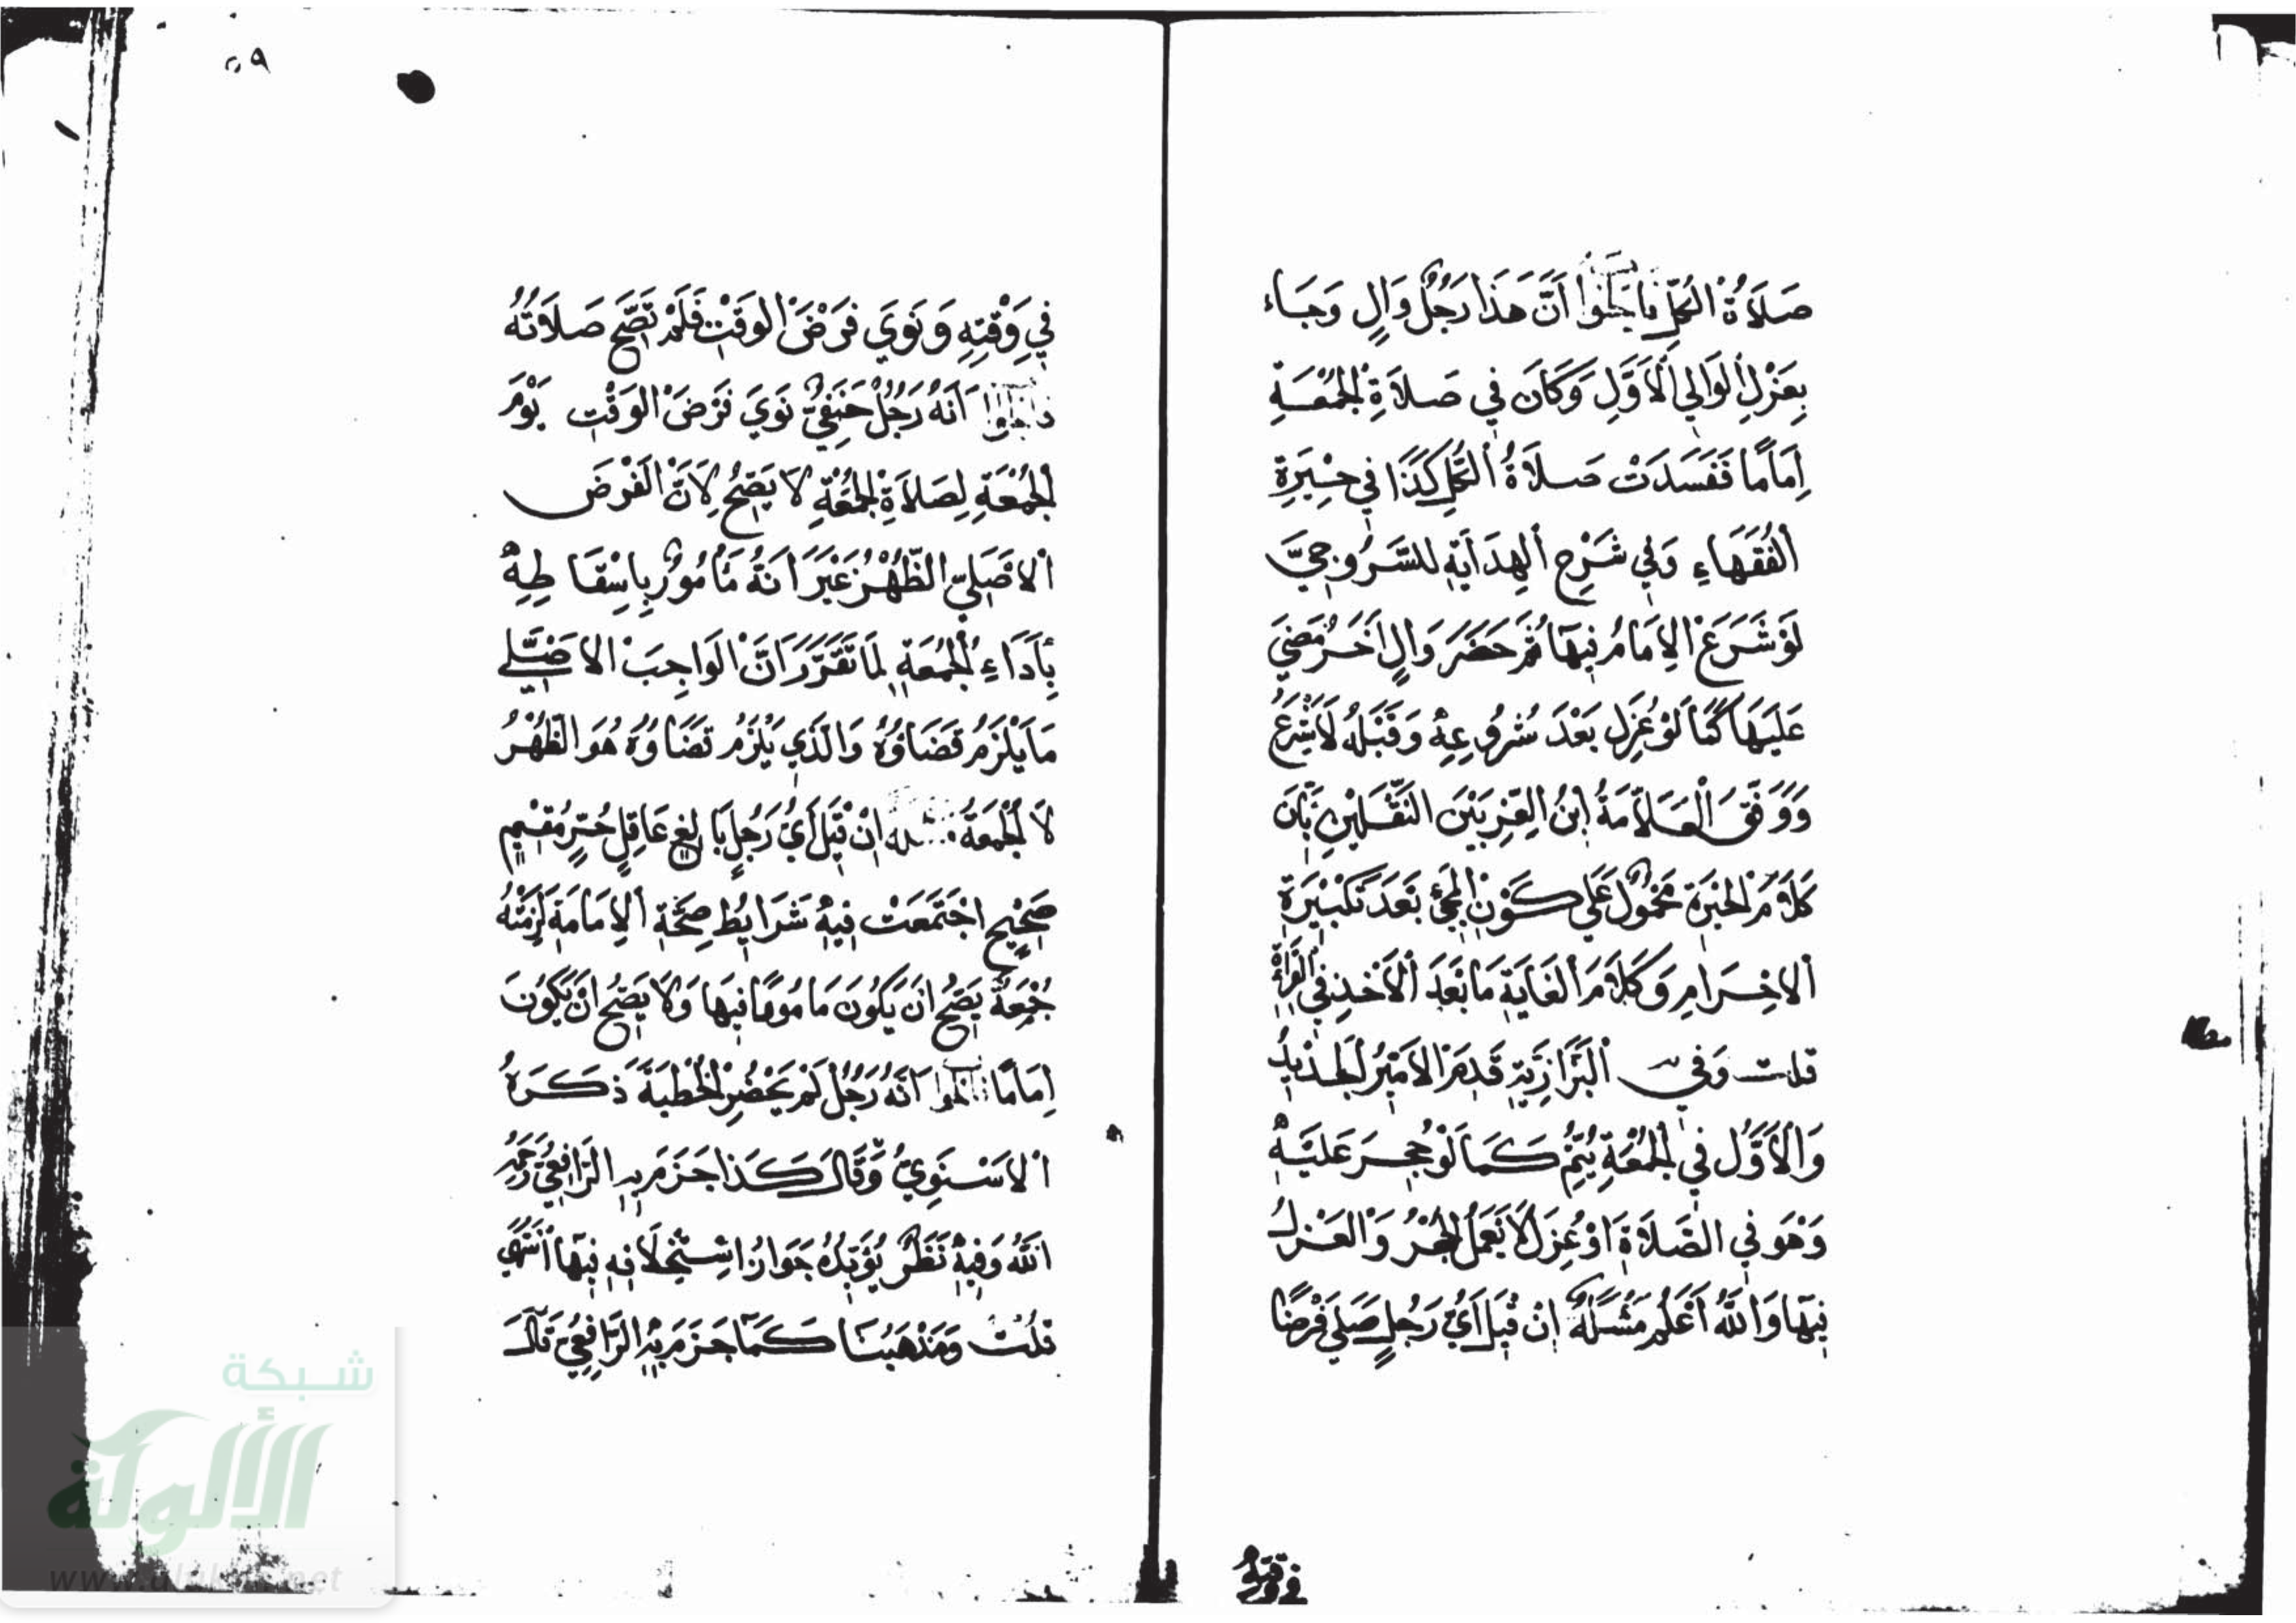 صَلَاةُ الكُلِّ فاجابوا أَنَّ هَذَا رَجُلٌ وَالٍ وَجَاء
بِعَزْلِ الوَالِي الْأَوَّلِ وَكَانَ فِي صَلَاةِ الجُمُعَةِ
إِمَامًا فَفَسَدَتْ صَلَاةُ الكُلِّ كَذَا فِي حِيرَةِ
الفُقَهَاءِ وَفِي شَرْحِ الهِدَايَةِ للسَّرُوجِيِّ
لَوْ شَرَعَ الإِمَامُ فِيهَا ثُمَّ حَضَرَ وَالٍ اَخَرُ مَضَى
عَلَيْهَا كَمَا لَوْ عُزِل بَعْدَ شُرُوعِهِ وَقَبْلَهُ لَا يَشْرَعُ
وَوَفَّقَ العَلَّامَةُ ابْنُ العِزِّ بَيْنَ النَّقْلَيْنِ بِأَنَ
كَلَامَ الحِيْرَةِ مَحْمُولٌ عَلَى كَوْنِ المَجِئِ بَعْدَ تَكْبِيْرَةِ
الاحْرَامِ وَكَلَامَ الغَايَةِ مَا بَعْدَ الأَخْذِ فِي القِرَاءَةِ
قلت وَفي البَزَّازِيَّةِ قَدِمَ الأَمِيْرُ الجَدِيْدُ
وَالأَوَّلُ فِي الجُمُعَةِ يُتِمُّ كَمَا لَوْ حُجِرَ عَلَيْهِ
وَهْوَ فِي الصَّلَاةِ اَوْ عُزِلَ لَا يَعْمَلُ الحَجْرُ وَالعَزْلُ
فِيهَا وَاللَّهُ أَعْلَمُ مَسْئَلَةٌ إِنْ قِيْلَ أَيُّ رَجُلٍ صَلَى فَرْضًا
في وقته
٥٩
فِي وَقْتِهِ وَنَوَى فَرْضَ الوَقْتِ فَلَمْ تَصِحَّ صَلَاتُهُ
فاجابوا اَنَّهُ رَجُلٌ حَنَفِيٌّ نَوَى فَرْضَ الوَقْتِ يَوْمَ
الجُمُعَةِ لِصَلَاةِ الجُمُعَةِ لَا يَصِحُّ لِاَنَّ الفَرْضَ
الْاَصْلِيَّ الظُّهْرُ غَيْرَ اَنَهُ مَأْمُورٌ بِاِسْقَاطِهِ
بِأَدَاءِ الجُمُعَةِ لِمَا تَقَرَّرَ اَنَّ الوَاجِبَ الاَصْلِيَّ
مَا يَلْزَمُ قَضَاؤُهُ وَالَّذِي يَلْزَمُ قَضَاؤُهُ هُوَ الظُّهْرُ
لَا الجُمُعَةُ مسئلة اِنْ قِيْلَ أَيُّ رَجُلٍ بَالِغٍ عَاقِلٍ حُرٍّ مُقِيْمٍ
صَحِيْحٍ اجْتَمَعَتْ فِيْهِ شَرَايِطُ صِحَّةِ الإِمَامَةِ لَزِمَتْهُ
جُمُعَةٌ يَصِحُّ اَنْ يَكُونَ مَامُومًا فِيهَا وَلَا يَصِحُّ اَنْ يَكُونَ
اِمَامًا اَنَّهُ رَجُلٌ لَمْ يَحْضُرِ الخُطْبَةَ ذَكَرَهُ
الْاَسْنَوِيُّ وَقَالَ كَذَا جَزَمَ بِهِ الرَّافِعِيُّ رَحِمَهُ
اللَّهُ وَفِيْهِ نَظَرٌ يُؤَيِّدُهُ جَوَازُ اسْتِخْلَافِهِ فِيْهَا انْتَهَى
قلْتُ وَمَذْهَبُنَا كَمَا جَزَمَ بِهِ الرَّافِعِيُّ قَالَ
شبكة
الألوكة
www.alukah.net